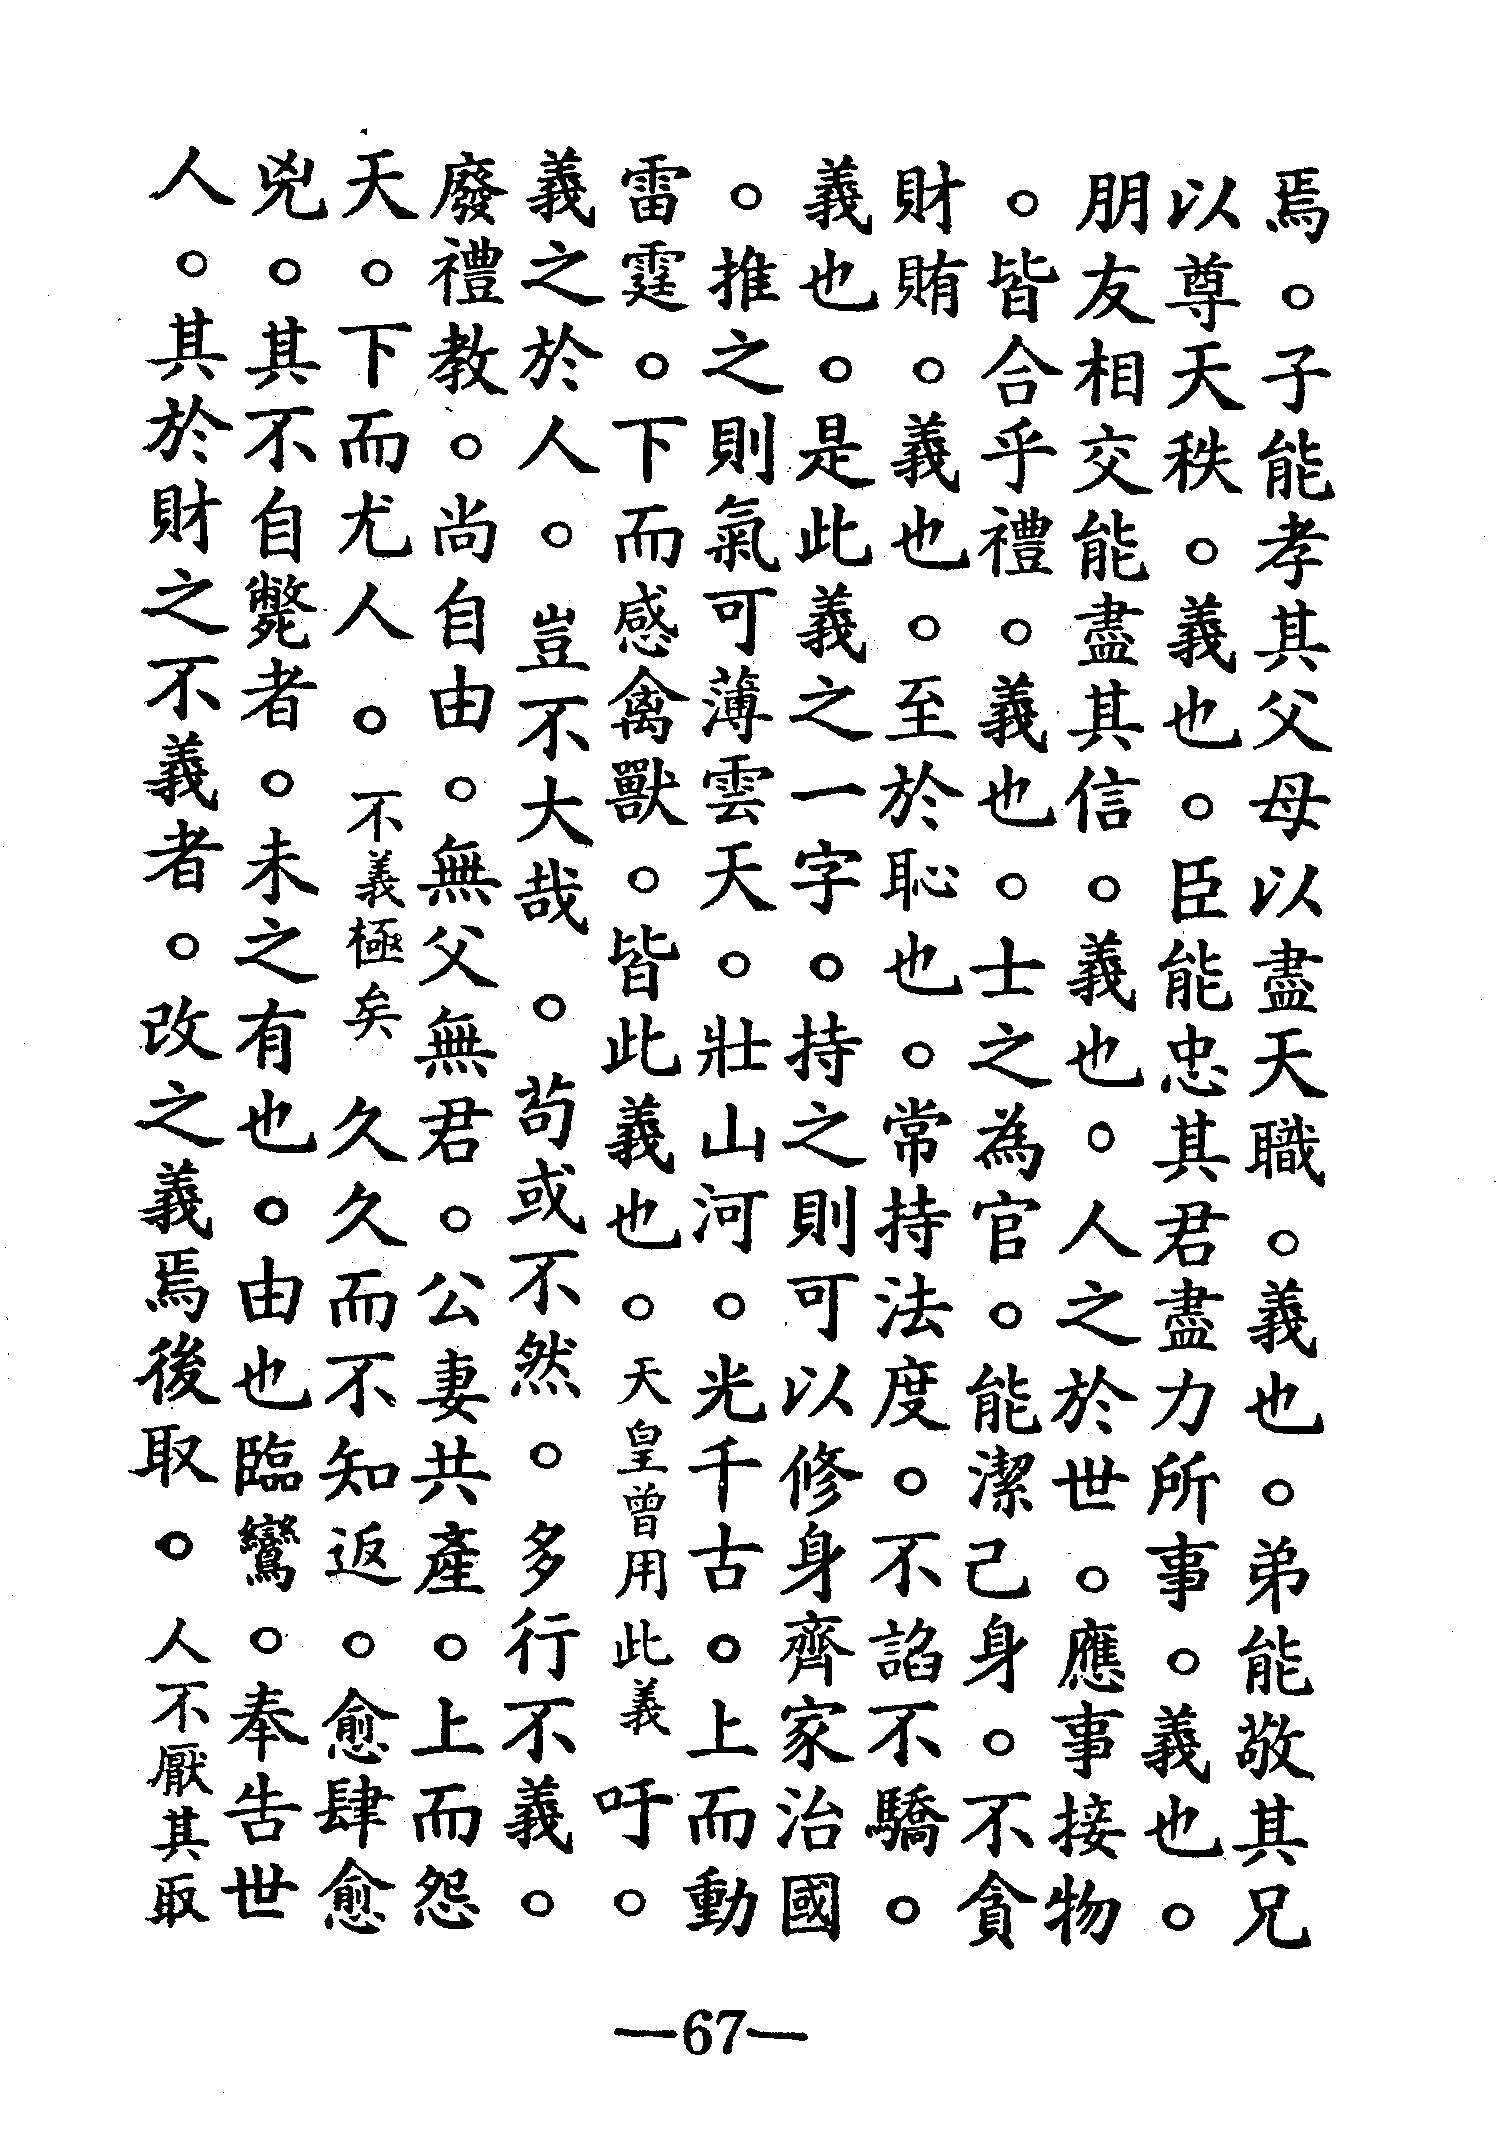 焉。子能孝其父母以盡天職。義也。弟能敬其兄
以尊天秩。義也。臣能忠其君盡力所事。義也。
朋友相交能盡其信。義也。人之於世。應事接物
。皆合乎禮。義也。士之為官。能潔己身。不貪
財賄。義也。至於恥也。常持法度。不諂不驕。
義也。是此義之一字。持之則可以修身齊家治國
。推之則氣可薄雲天。壯山河。光千古。上而動
雷霆。下而感禽獸。皆此義也。天皇曾用此義 吁。
義之於人。豈不大哉。苟或不然。多行不義。
廢禮教。尚自由。無父無君。公妻共產。上而怨
天。下而尤人。不義極矣 久久而不知返。愈肆愈
兇。其不自斃者。未之有也。由也臨鸞。奉告世
人。其於財之不義者。改之義焉後取。人不厭其取
—67—